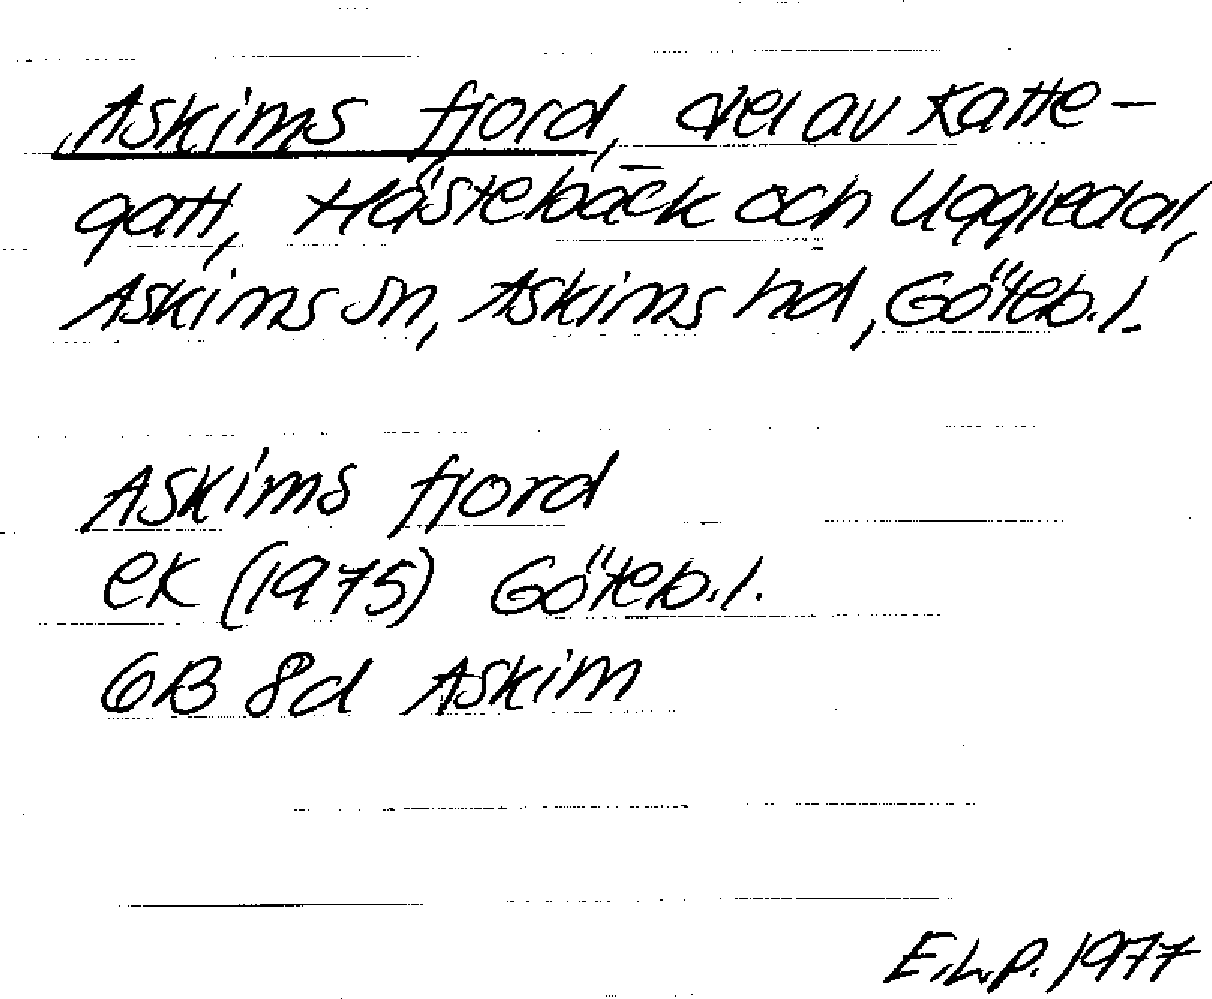 Askims fjord, del av Katte-
gatt, Hästebäck och Uggledal,
Askims sn, Askims hd, Göteb.l.
Askims fjord
ek (1975) Göteb.l.
6B 8d Askim
E.L.P. 1977